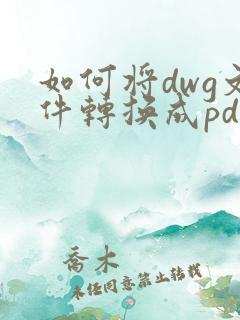 如何将dwg文
件轉換成pd
喬木
未经同意禁止转载